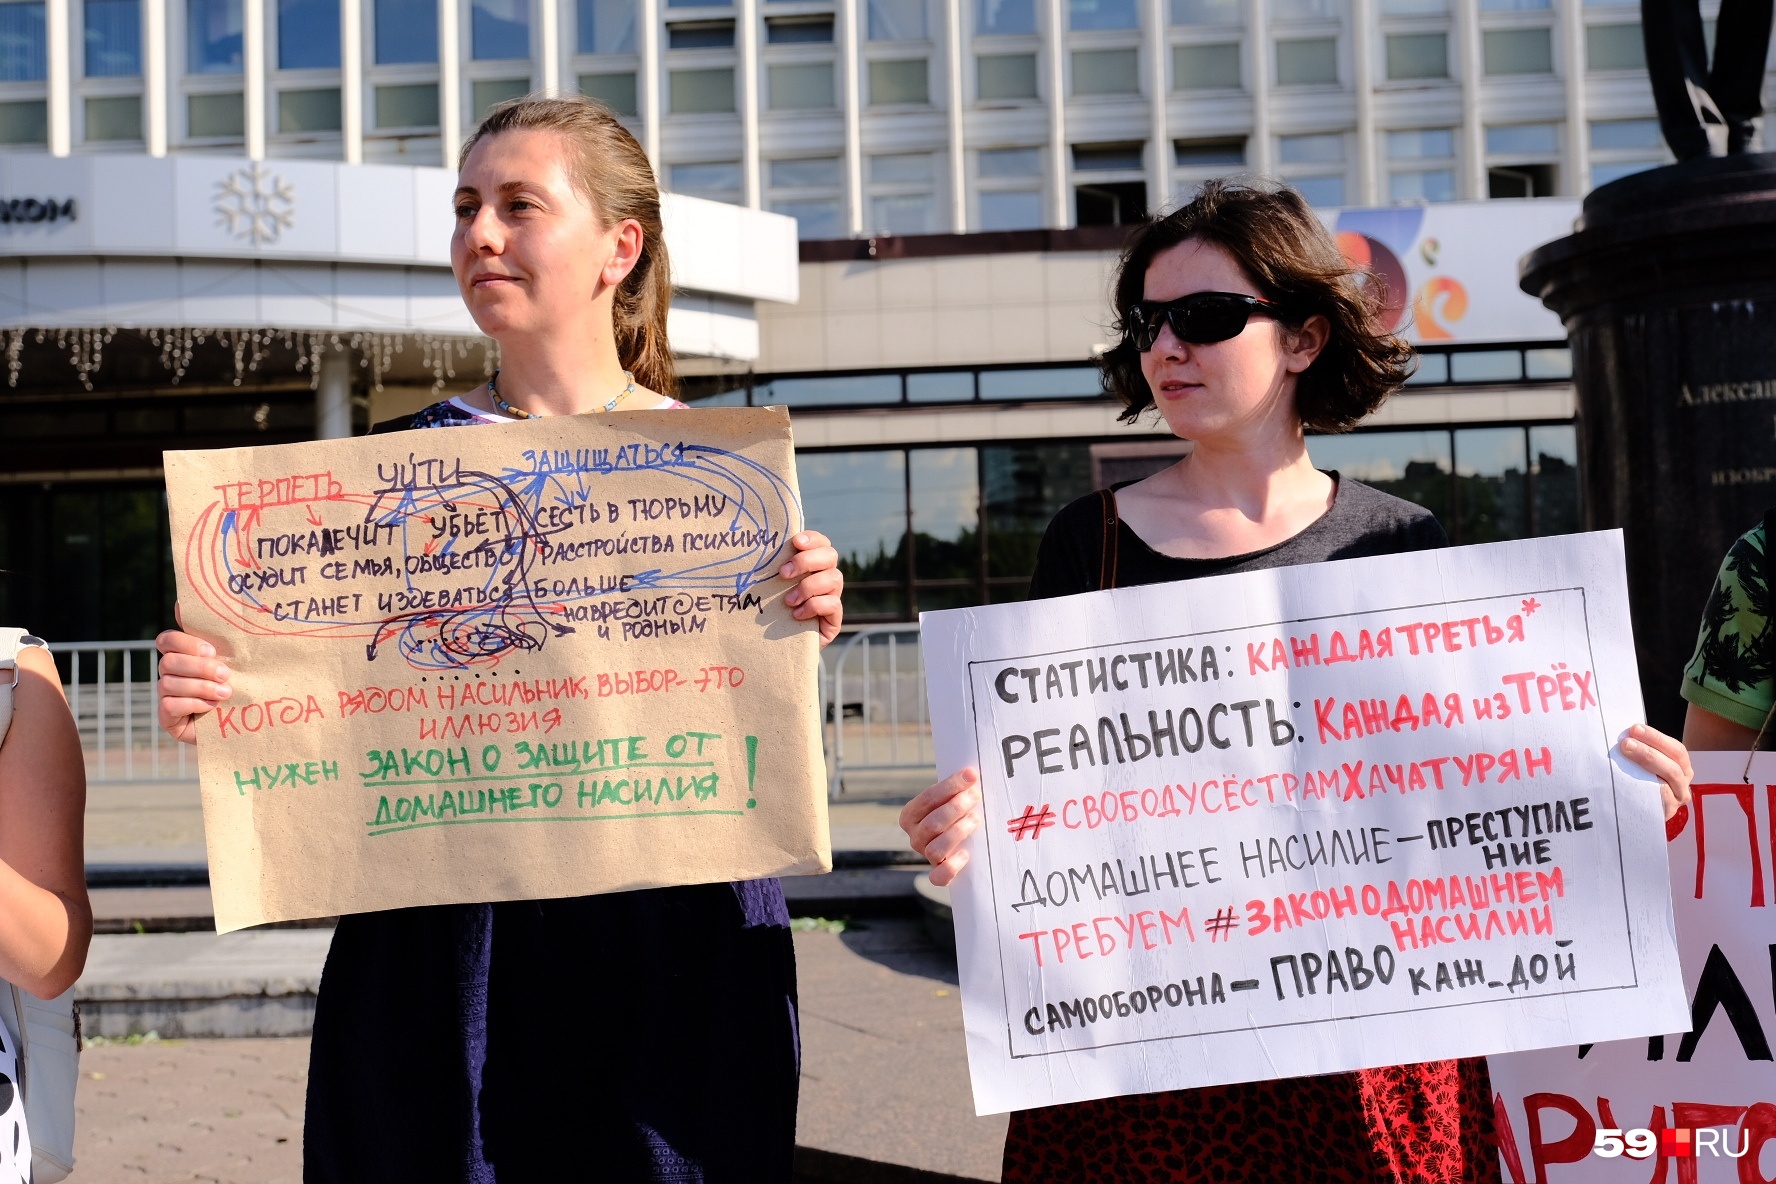 КОМ
ТЕРПЕТЬ УЙТИ ЗАЩИЩАТЬСЯ
ПОКАЛЕЧИТ УБЬЁТ СЕСТЬ В ТЮРЬМУ
ОСУДИТ СЕМЬЯ, ОБЩЕСТВО РАССТРОЙСТВА ПСИХИКИ
СТАНЕТ ИЗДЕВАТЬСЯ БОЛЬШЕ
НАВРЕДИТ ДЕТЯМ
И РОДНЫМ
КОГДА РЯДОМ НАСИЛЬНИК, ВЫБОР - ЭТО
ИЛЛЮЗИЯ
НУЖЕН ЗАКОН О ЗАЩИТЕ ОТ
ДОМАШНЕГО НАСИЛИЯ !
СТАТИСТИКА: КАЖДАЯ ТРЕТЬЯ*
РЕАЛЬНОСТЬ: КАЖДАЯ ИЗ ТРЁХ
#СВОБОДУСЁСТРАМХАЧАТУРЯН
ДОМАШНЕЕ НАСИЛИЕ — ПРЕСТУПЛЕ
НИЕ
ТРЕБУЕМ #ЗАКОНОДОМАШНЕМ
НАСИЛИИ
САМООБОРОНА — ПРАВО КАЖ_ДОЙ
Алекса
59.RU